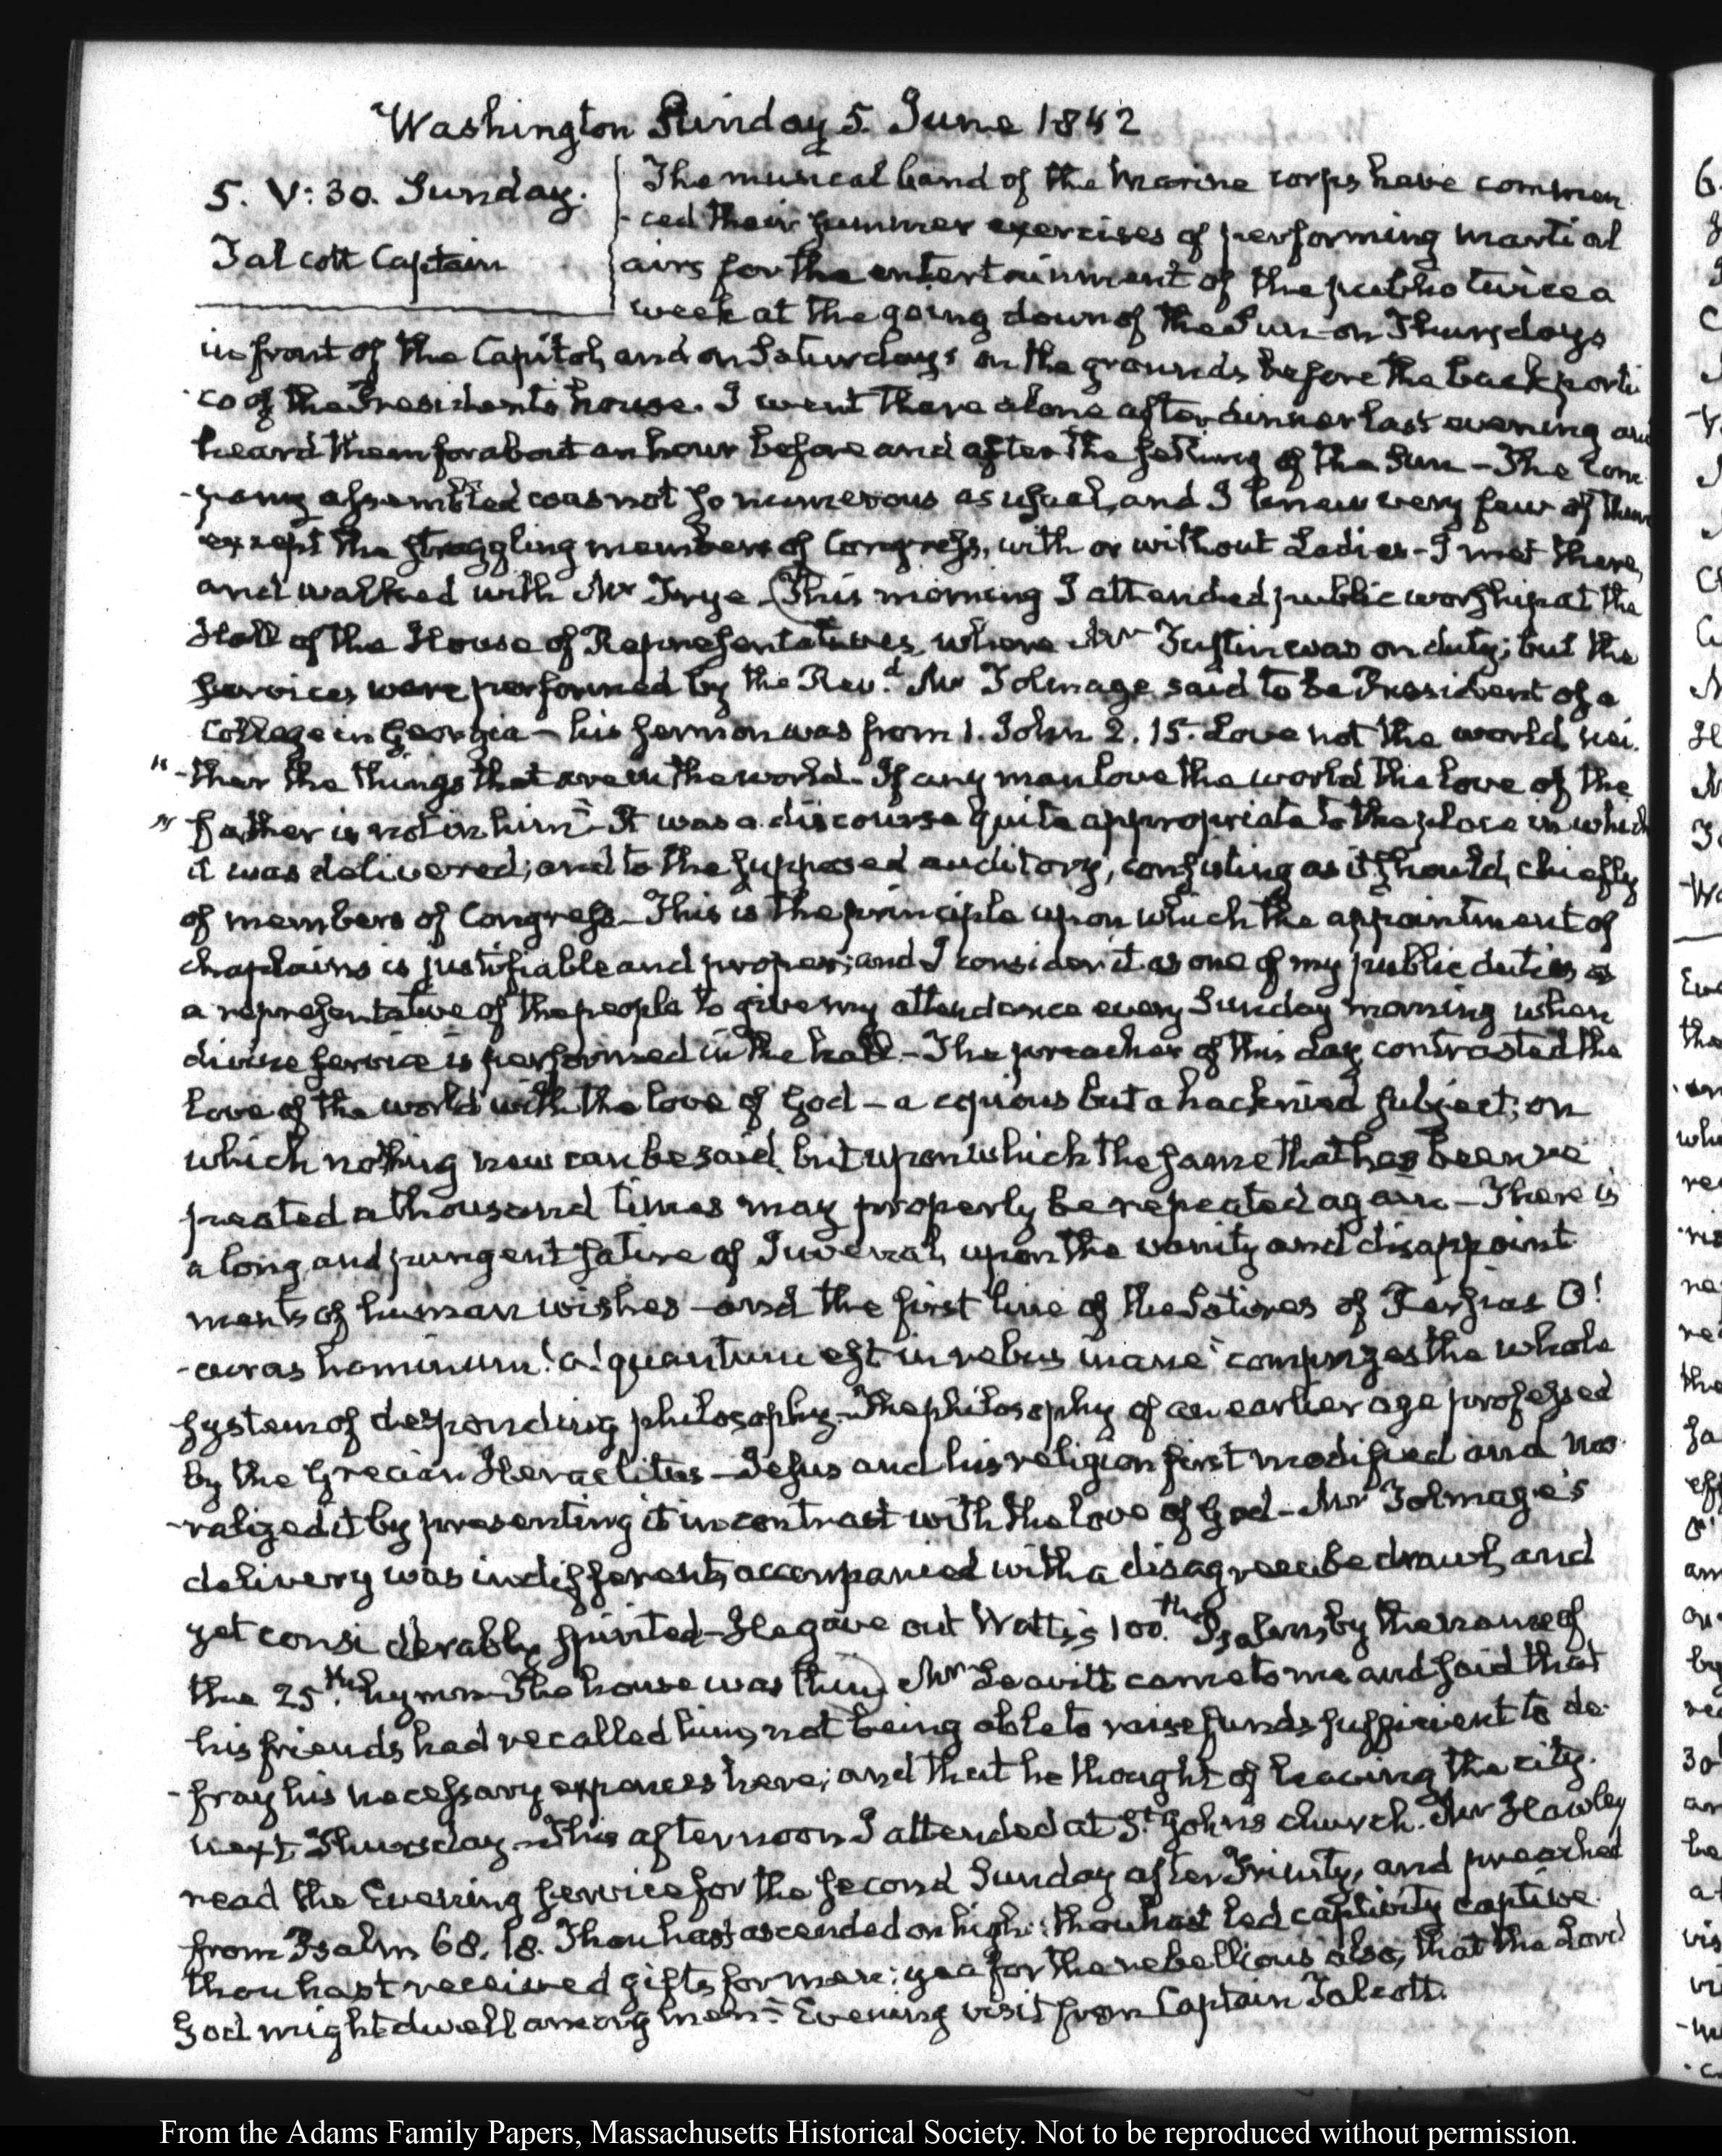 Washington Sunday 5. June 1842
5. V: 30. Sunday.
Talcott Captain
The musical band of the Marine corps have commen
-ced their summer exercises of performing martial
airs for the entertainment of the public twice a
week at the going down of the Sun on Thursdays
in front of the Capitol, and on Saturdays on the grounds before the back porti
-co of the Presidents house. I went there alone after dinner last evening and
heard them for about an hour before and after the setting of the Sun - The com
-pany assembled was not so numerous as usual, and I knew very few of them
except the straggling members of Congress, with or without Ladies - I met there,
and walked with Mr Frye - (This morning I attended public worship at the
Hall of the House of Representatives, where Mr Tustin was on duty; but the
services were performed by the Rev.d Mr Tolmage said to be President of a
College in Georgia - his sermon was from 1. John 2. 15. Love not the world, nei-
"-ther the things that are in the world - If any man love the world the love of the
" father is not in him" - It was a discourse quite appropriate to the place in which
it was delivered; and to the supposed auditory, consisting as it should, chiefly
of members of Congress - This is the principle upon which the appointment of
chaplains is justifiable and proper; and I consider it as one of my public duties as
a representative of the people to give my attendance every Sunday morning when
divine service is performed in the hall - The preacher of this day contrasted the
love of the world with the love of God - a copious but a hacknied subject; on
which nothing new can be said, but upon which the same that has been re
peated a thousand times may properly be repeated again - There is
a long and pungent satire of Juvenal, upon the vanity and disappoint
ments of human wishes - and the first line of the Satires of Persius O!
-curas hominum! O! quantum est in rebus inane" comprizes the whole
system of desponding philosophy - The philosophy of an earlier age professed
by the Grecian Heraclitus - Jesus and his religion first modified and mo
-ralized it by presenting it in contrast with the love of God - Mr Tolmage's
delivery was indifferent, accompanied with a disagreeabe drawl, and
yet considerably spirited - He gave out Watts's 100.th Psalm by the name of
the 25th. hymn - The house was thin) Mr Leavitt came to me and said that
his friends had recalled him, not being able to raise funds sufficient to de-
-fray his necessary expences here; and that he thought of leaving the city
next Thursday - This afternoon I attended at St. Johns church. Mr Hawley
read the Evening service for the second Sunday after Trinity, and preached
from Psalm 68. 18. Thou hast ascended on high: thou hast led captivity captive
thou hast received gifts for men: yea for the rebellious also, that the Lord
God might dwell among them" - Evening visit from Captain Talcott.
From the Adams Family Papers, Massachusetts Historical Society. Not to be reproduced without permission.